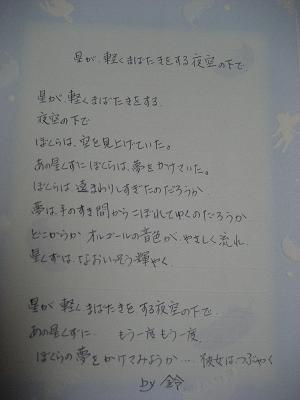 星が、軽くまばたきをする夜空の下で
星が、軽くまばたきをする、
夜空の下で
ぼくらは、空を見上げていた。
あの星くずにぼくらは、夢をかけていた。
ぼくらは遠まわりしすぎたのだろうか
夢は、手のすき間からこぼれてゆくのだろうか
どこからか オルゴールの音色が、やさしく流れ、
星くずは、なおいっそう輝やく、
星が 軽くまばたきを する夜空の下で、
あの星くずに、 もう一度 もう一度、
ぼくらの夢をかけてみようか… 彼女はつぶやく
by 鈴